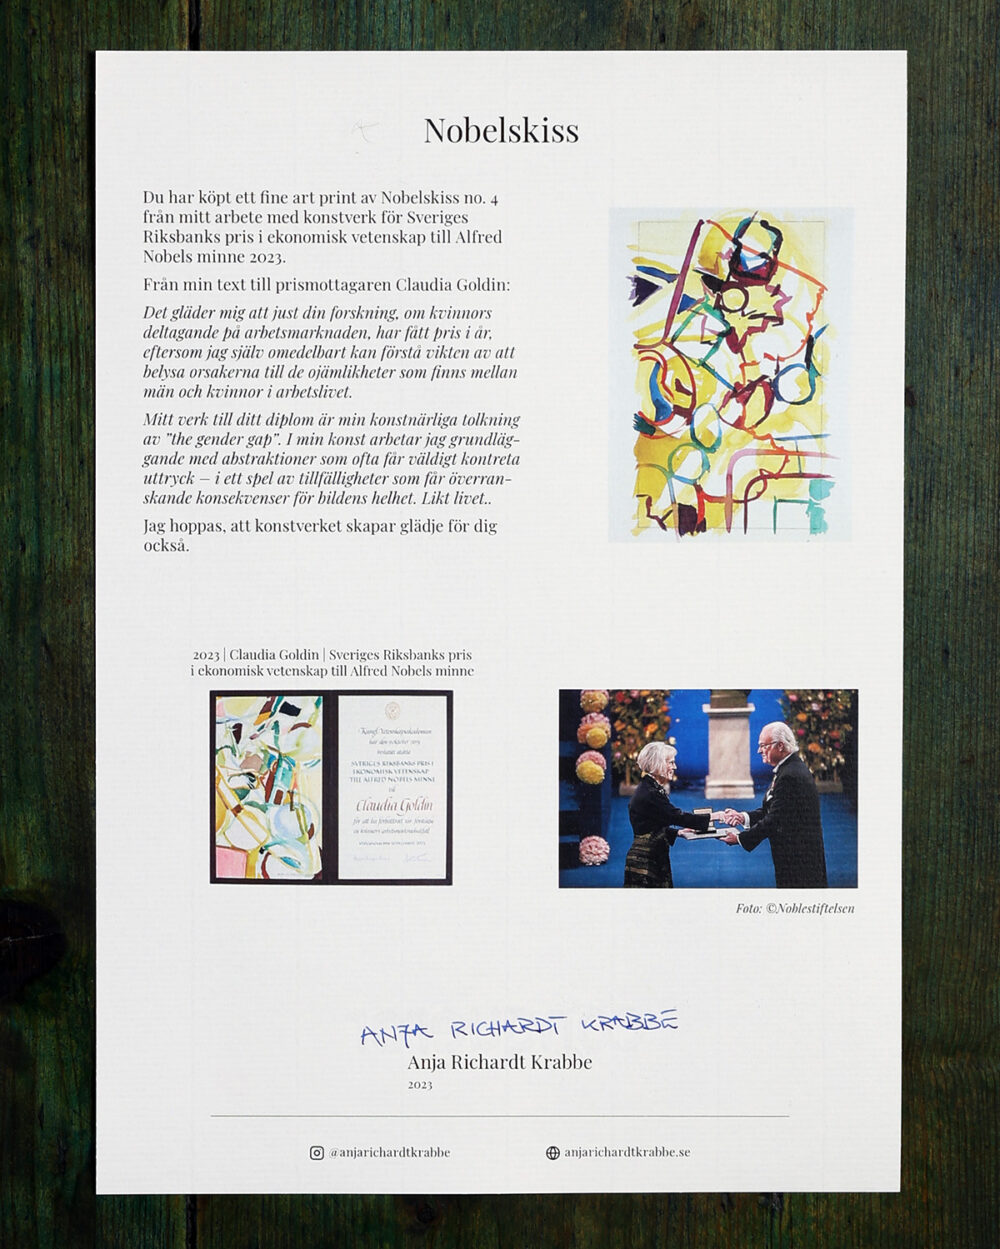 Nobelskiss
Du har köpt ett fine art print av Nobelskiss no. 4
från mitt arbete med konstverk för Sveriges
Riksbanks pris i ekonomisk vetenskap till Alfred
Nobels minne 2023.
Från min text till prismottagaren Claudia Goldin:
Det gläder mig att just din forskning, om kvinnors
deltagande på arbetsmarknaden, har fått pris i år,
eftersom jag själv omedelbart kan förstå vikten av att
belysa orsakerna till de ojämlikheter som finns mellan
män och kvinnor i arbetslivet.
Mitt verk till ditt diplom är min konstnärliga tolkning
av "the gender gap". I min konst arbetar jag grundläg-
gande med abstraktioner som ofta får väldigt kontreta
uttryck – i ett spel av tillfälligheter som får överran-
skande konsekvenser för bildens helhet. Likt livet..
Jag hoppas, att konstverket skapar glädje för dig
också.
2023 | Claudia Goldin | Sveriges Riksbanks pris
i ekonomisk vetenskap till Alfred Nobels minne
Kungl. Vetenskapsakademien
har den 9 oktober 2023
beslutat utdela
SVERIGES RIKSBANKS PRIS I
EKONOMISK VETENSKAP
TILL ALFRED NOBELS MINNE
till
Claudia Goldin
för att ha förbättrat vår förståelse
av kvinnors arbetsmarknadsutfall
Foto: ©Noblestiftelsen
ANJA RICHARDT KRABBE
Anja Richardt Krabbe
2023
@anjarichardtkrabbe
anjarichardtkrabbe.se